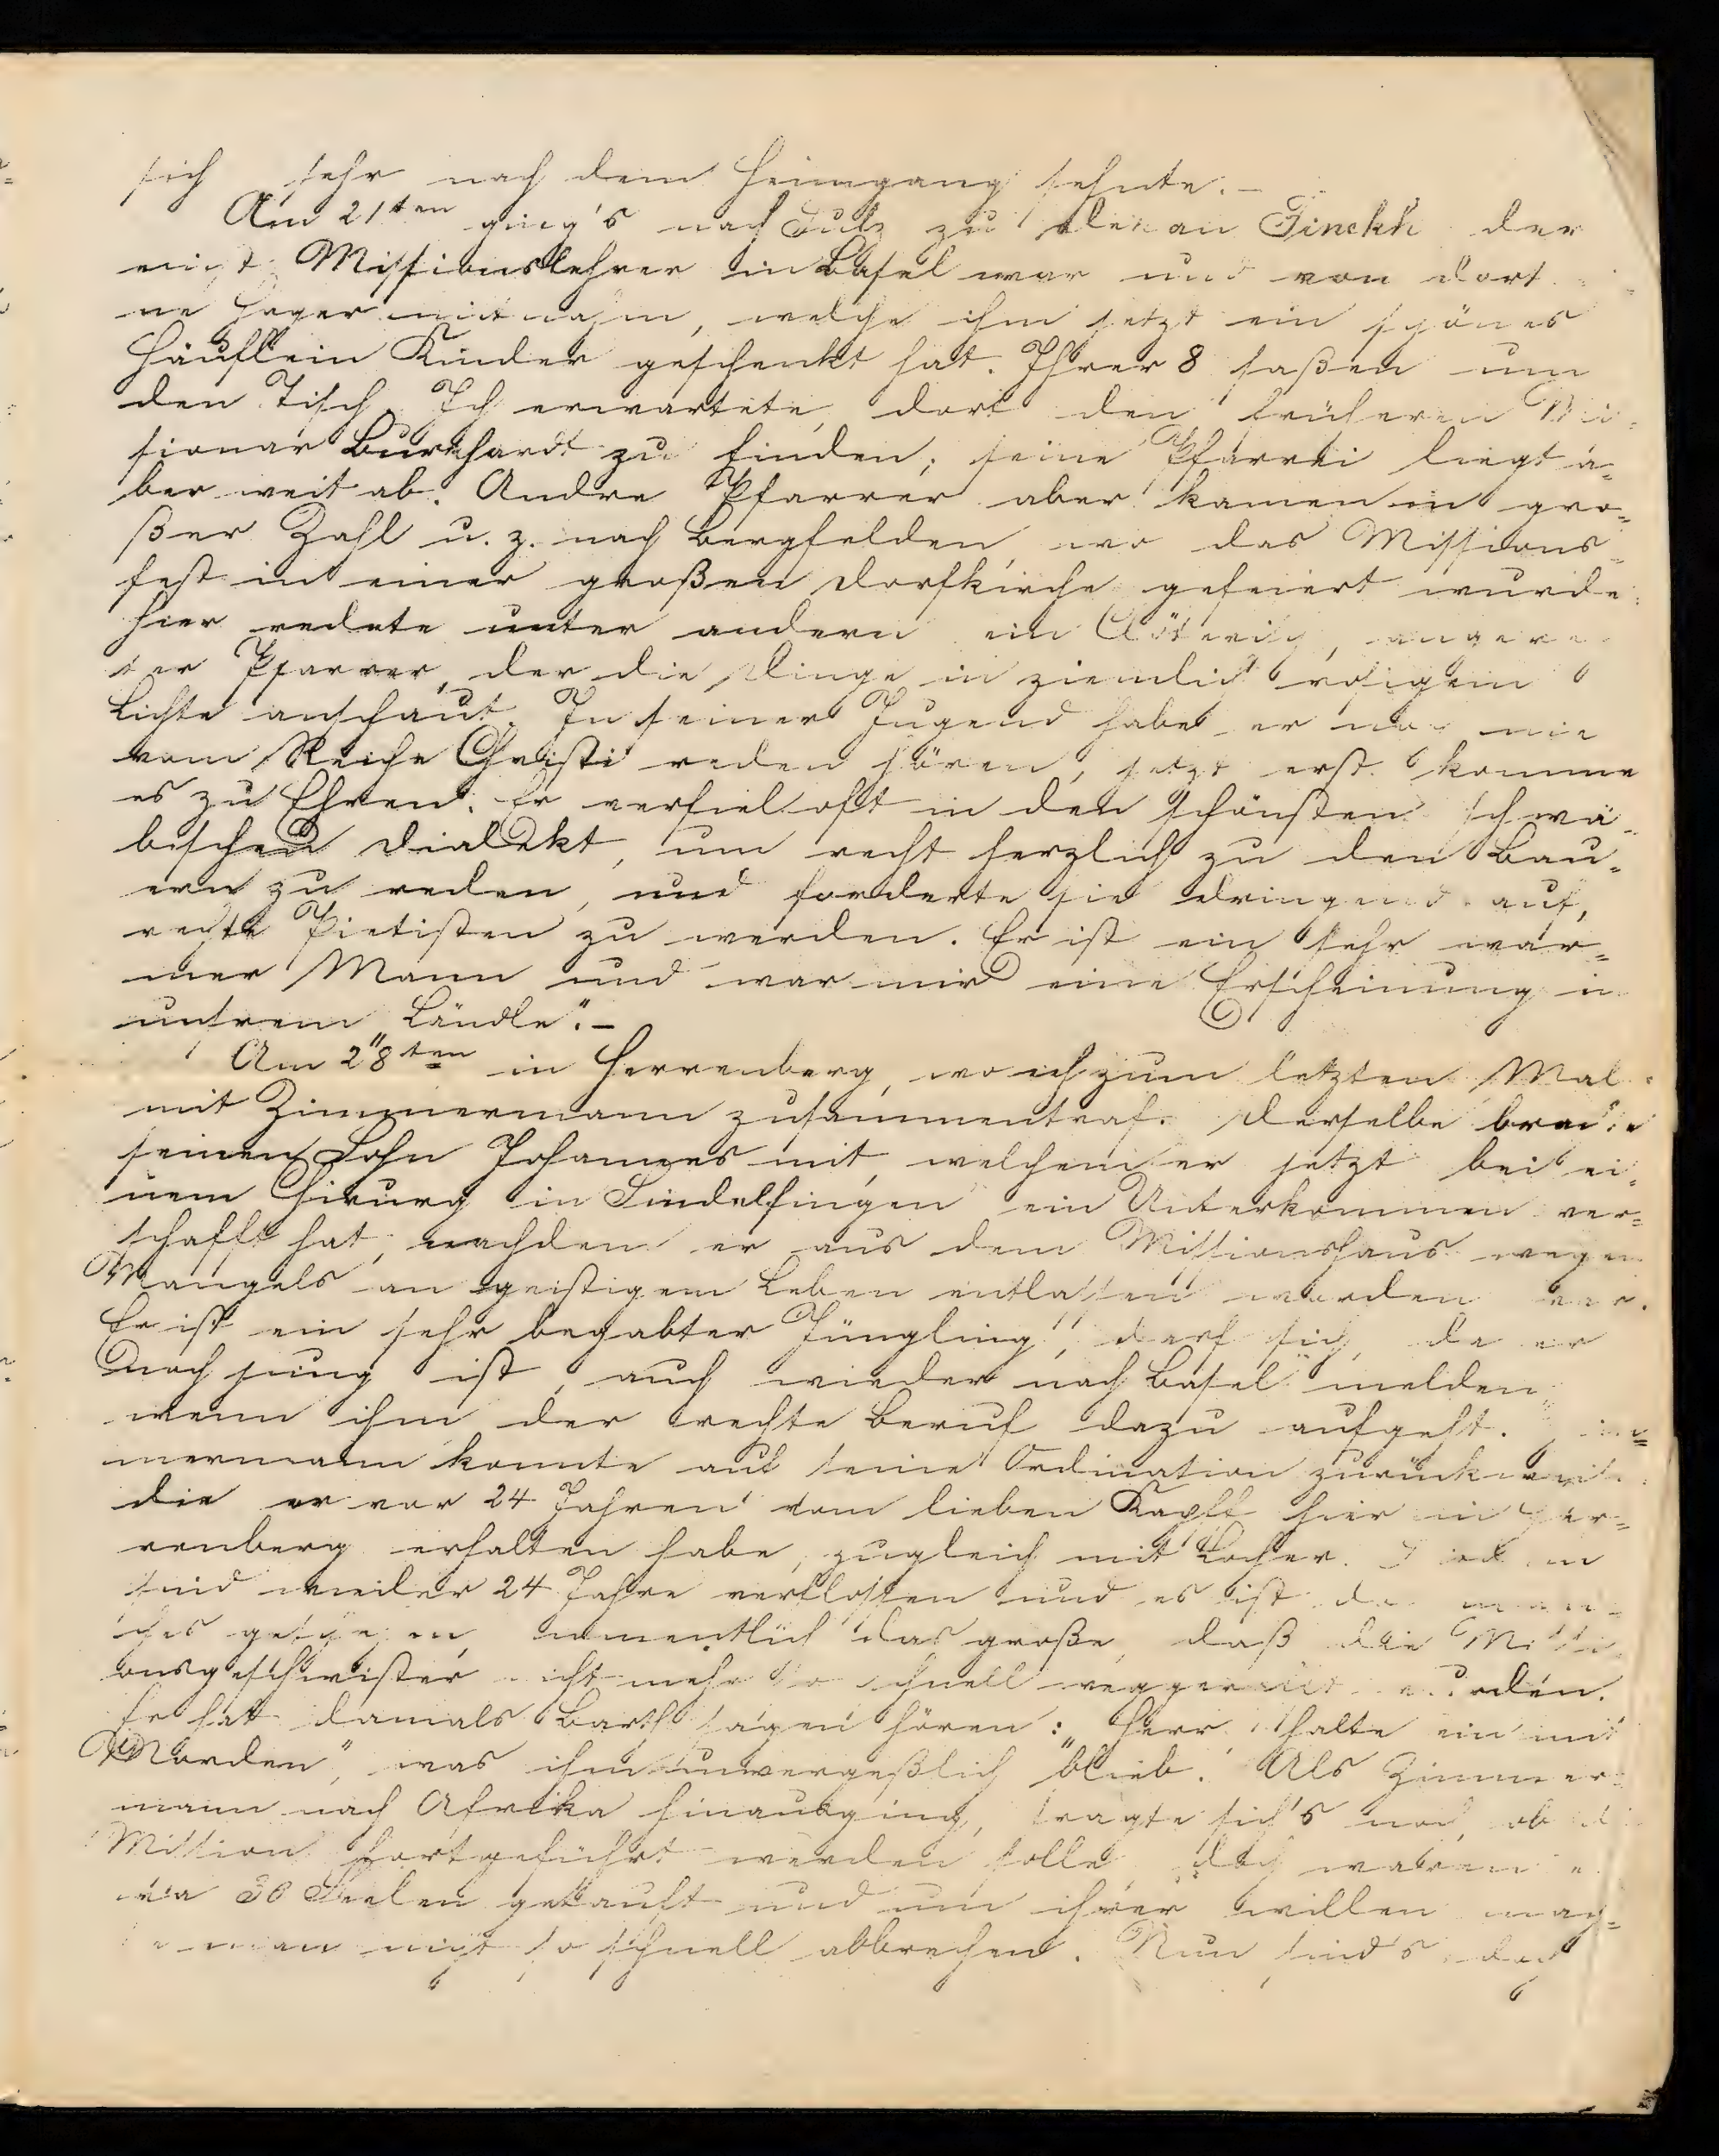 sich sehr nach dem Heimgang sehnte. –
Am 21ten ging's nach Sulz zu Dekan Finckh der
einst Missionslehrer in Basel war und von dort
ne mitnahm, welche ihm jetzt ein schönes
Häuflein Kinder geschenkt hat. Ihrer 8 saßen um
den Tisch. Ich erwartete, dort den früheren Mis-
sionar Burkhardt zu finden; seine Pfarrei liegt a-
ber weit ab. Andre Pfarrer aber kamen in gro-
ßer Zahl u. z. nach Bergfelden, wo das Missions-
fest in einer großen Dorfkirche gefeiert wurde.
Hier redete unter andern ein
ter Pfarrer, der die Dinge in ziemlich rosigem
Lichte anschaut. In seiner Jugend habe er nie
vom Reiche Christi reden hören, jetzt erst komme
es zu Ehren. Er verfiel oft in den schönsten schwä-
bischen Dialekt, um recht herzlich zu den Bau-
ern zu reden, und forderte sie dringend auf,
rechte Pietisten zu werden. Er ist ein sehr war-
mer Mann und war mir eine Erscheinung in
unsrem „Ländle". –
Am 28ten in Herrenberg, wo ich zum letzten Mal
mit Zimmermann zusammentraf. Derselbe brachte
seinen Sohn Johannes mit, welchem er jetzt bei ei-
nem Chirurg in Sindelfingen ein Unterkommen ver-
schafft hat, nachdem er aus dem Missionshaus wegen
Mangels an geistigem Leben entlassen worden war.
Er ist ein sehr begabter Jüngling, darf sich, da er
noch jung ist, auch wieder nach Basel melden,
wenn ihm der rechte Beruf dazu aufgeht.
mermann konnte auf seine Ordination
die er vor 24 Jahren vom lieben Kapff hier in Her-
renberg erhalten habe, zugleich mit Locher.
sind weiter 24 Jahre verflossen und es ist da man-
ches geschehen, namentlich das große, daß die Missi-
onsgeschwister nicht mehr so schnell weggerafft werden.
Er hat damals Barth sagen hören: „Herr, halte ein mit
Morden", was ihm unvergeßlich blieb. Als Zimmer-
mann nach Afrika hinausging, fragte sich's noch, ob d
Mission fortgeführt werden solle, doch waren e
wa 30 Seelen getauft und um ihrer willen moch-
te man nicht so schnell abbrechen. Nun sind's doch